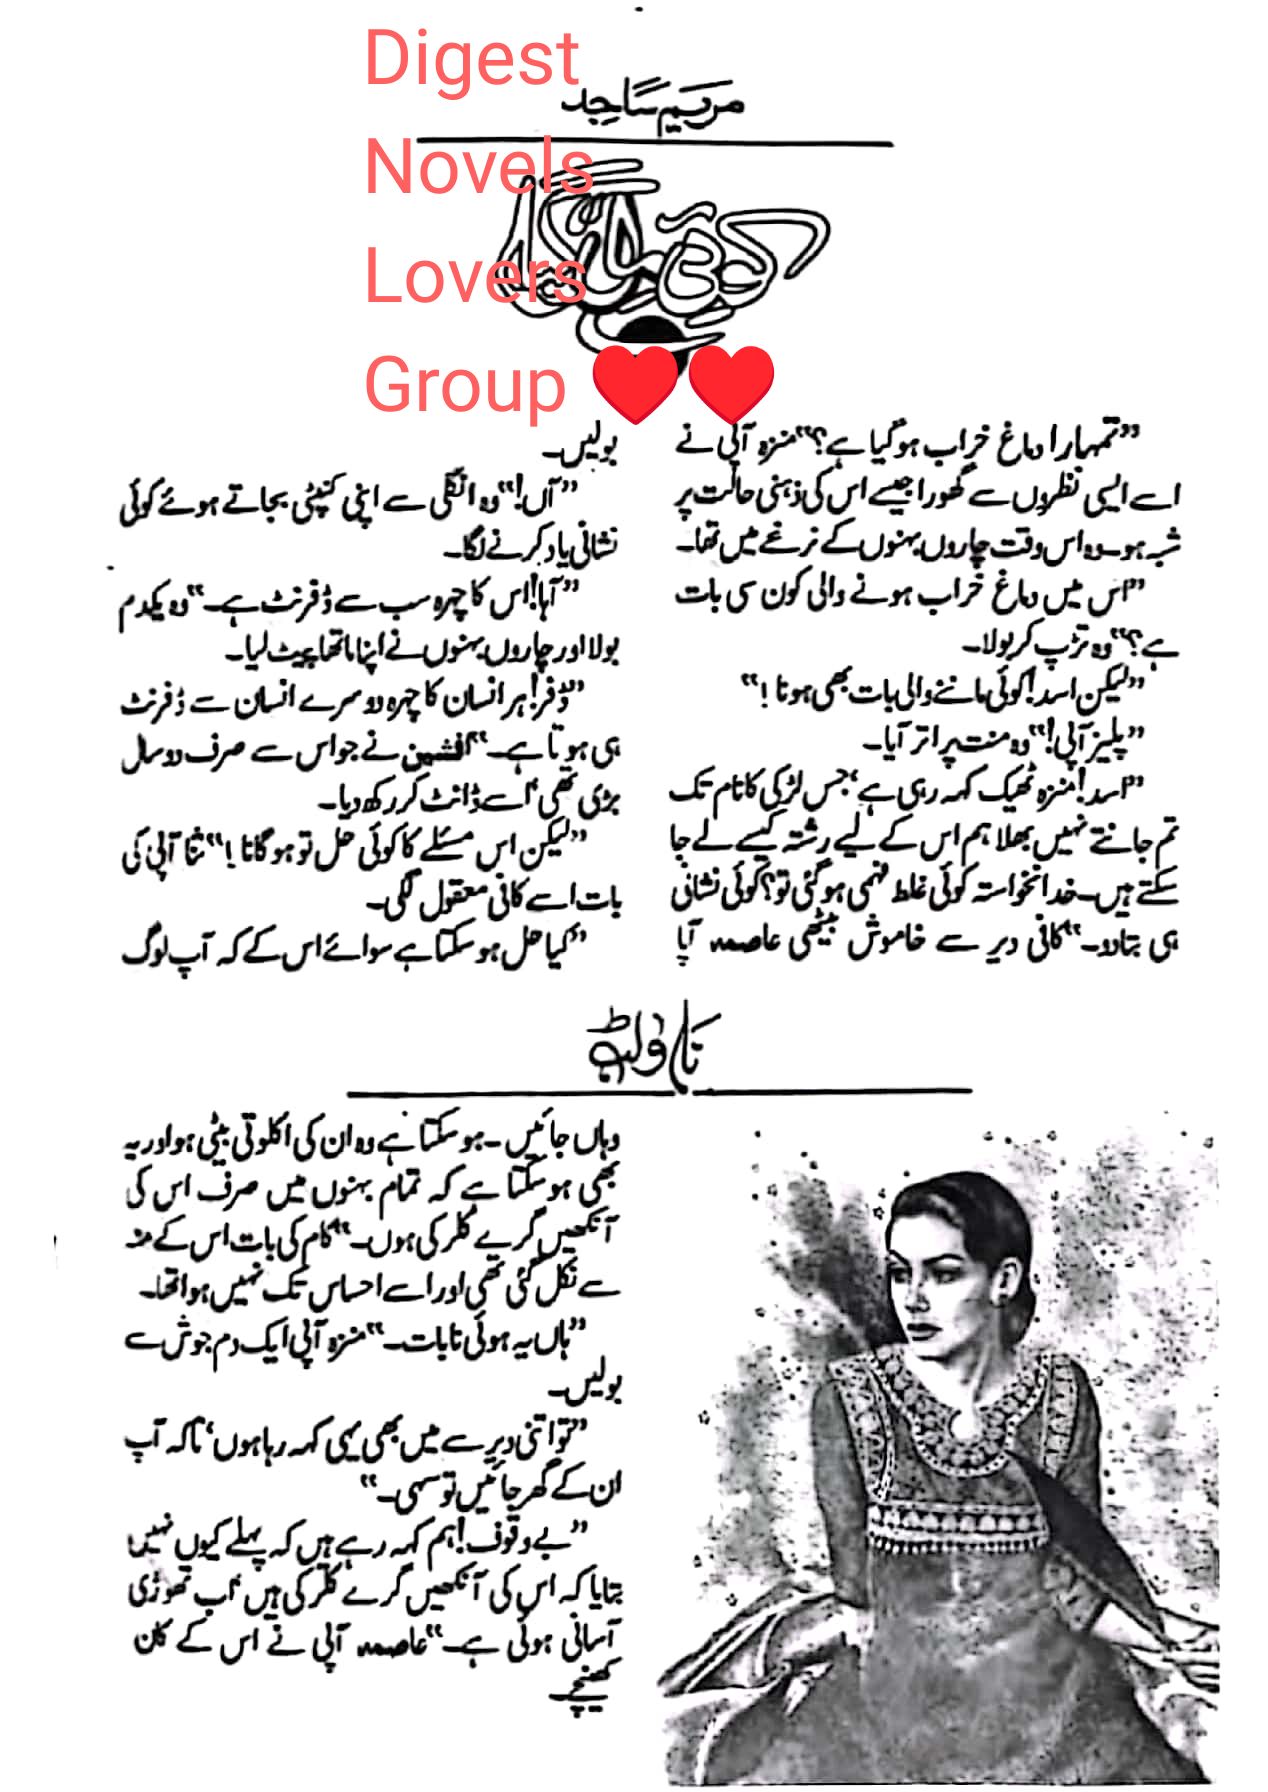 Digest
Novels
Lovers
Group
مریم ساجد
”تمہارا دماغ خراب ہوگیا ہے؟“ منزہ آپی نے
اسے ایسی نظروں سے گھورا جیسے اس کی ذہنی حالت پر
شبہ ہو۔ وہ اس وقت چاروں بہنوں کے نرغے میں تھا۔
”اس میں دماغ خراب ہونے والی کون سی بات
ہے؟“ وہ تڑپ کر بولا۔
”لیکن اسد! کوئی ماننے والی بات بھی ہو نا!“
”پلیز آپی!“ وہ منت پر اتر آیا۔
”اسد! منزہ ٹھیک کہہ رہی ہے، جس لڑکی کا نام تک
تم جانتے نہیں بھلا ہم اس کے لیے رشتہ کیسے لے جا
سکتے ہیں۔ خدانخواستہ کوئی غلط فہمی ہوگئی تو؟ کوئی نشانی
ہی بتادو۔“ کافی دیر سے خاموش بیٹھی عاصمہ آپا
بولیں۔
”آں!“ وہ انگلی سے اپنی کنپٹی بجاتے ہوئے کوئی
نشانی یاد کرنے لگا۔
”آہا! اس کا چہرہ سب سے ڈفرنٹ ہے۔“ وہ یکدم
بولا اور چاروں بہنوں نے اپنا ماتھا پیٹ لیا۔
”ڈفر! ہر انسان کا چہرہ دوسرے انسان سے ڈفرنٹ
ہی ہوتا ہے۔“ افشین نے جو اس سے صرف دو سال
بڑی تھی، اسے ڈانٹ کر رکھ دیا۔
”لیکن اس مسئلے کا کوئی حل تو ہوگا نا!“ ثنا آپی کی
بات اسے کافی معقول لگی۔
”کیا حل ہوسکتا ہے سوائے اس کے کہ آپ لوگ
ناولٹ
وہاں جائیں۔ ہوسکتا ہے وہ ان کی اکلوتی بیٹی ہو اور یہ
بھی ہوسکتا ہے کہ تمام بہنوں میں صرف اس کی
آنکھیں گرے کلر کی ہوں۔“ کام کی بات اس کے منہ
سے نکل گئی تھی اور اسے احساس تک نہیں ہوا تھا۔
”ہاں یہ ہوئی نا بات۔“ منزہ آپی ایک دم جوش سے
بولیں۔
”تو اتنی دیر سے میں بھی یہی کہہ رہا ہوں، تاکہ آپ
ان کے گھر جائیں تو سہی۔“
”بے وقوف! ہم کہہ رہے ہیں کہ پہلے کیوں نہیں
بتایا کہ اس کی آنکھیں گرے کلر کی ہیں، اب تھوڑی
آسانی ہوئی ہے۔“ عاصمہ آپی نے اس کے کان
کھینچے۔